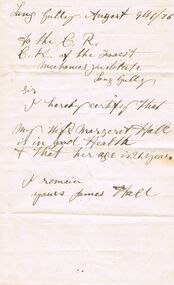 Long Gully August 9th/76
to the C. R.
C. K. of the Forest
Mechanics Institute
Long Gully
Sir
I hereby certify that
My Wife Margaret Hall
is in Good Health
& that her age is 26 years
I remain
yours James Hall